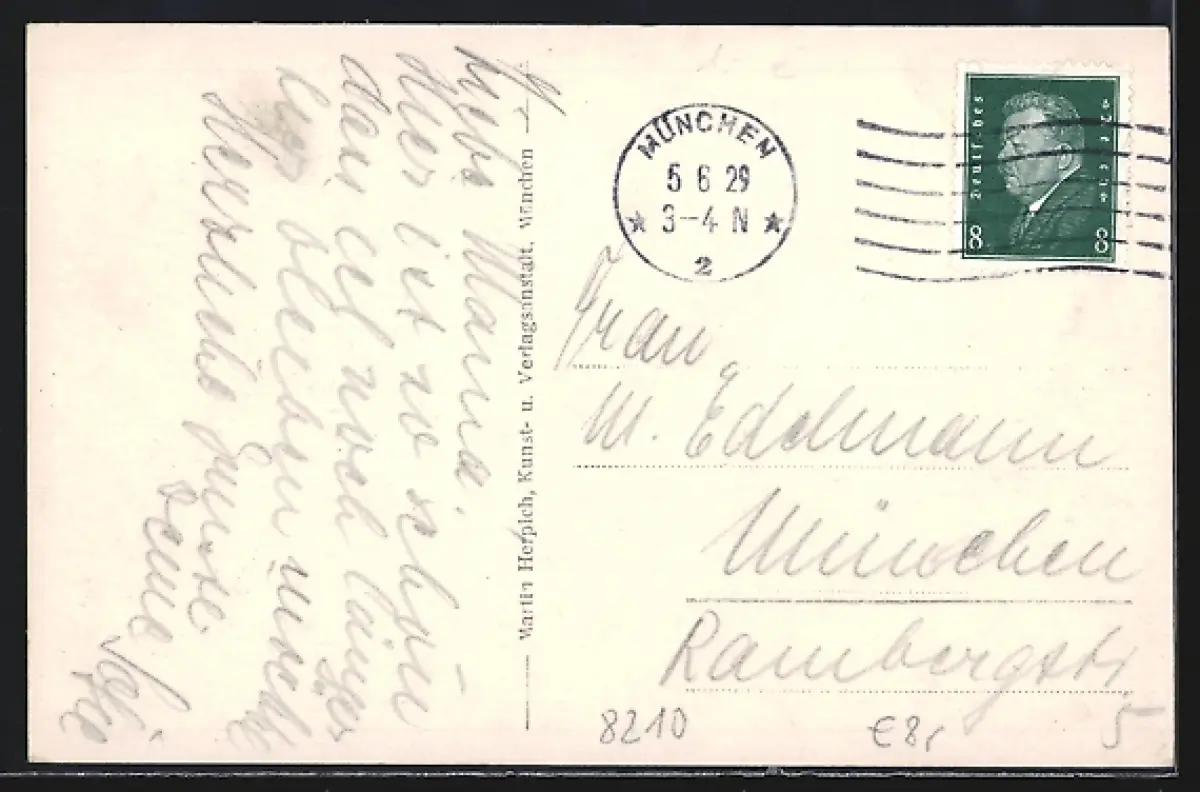 Liebe Mama,
Hier ist es so schön
dass ich noch länger
hier bleiben möchte
Herzliche Grüsse
Deine
Martin Herpich, Kunst- u. Verlagsanstalt, München
MÜNCHEN
5 6 29
3-4 N
2
Deutsches Reich
8 8
Frau
M. Edelmann
München
Rambergstr.
5
8210
€8,